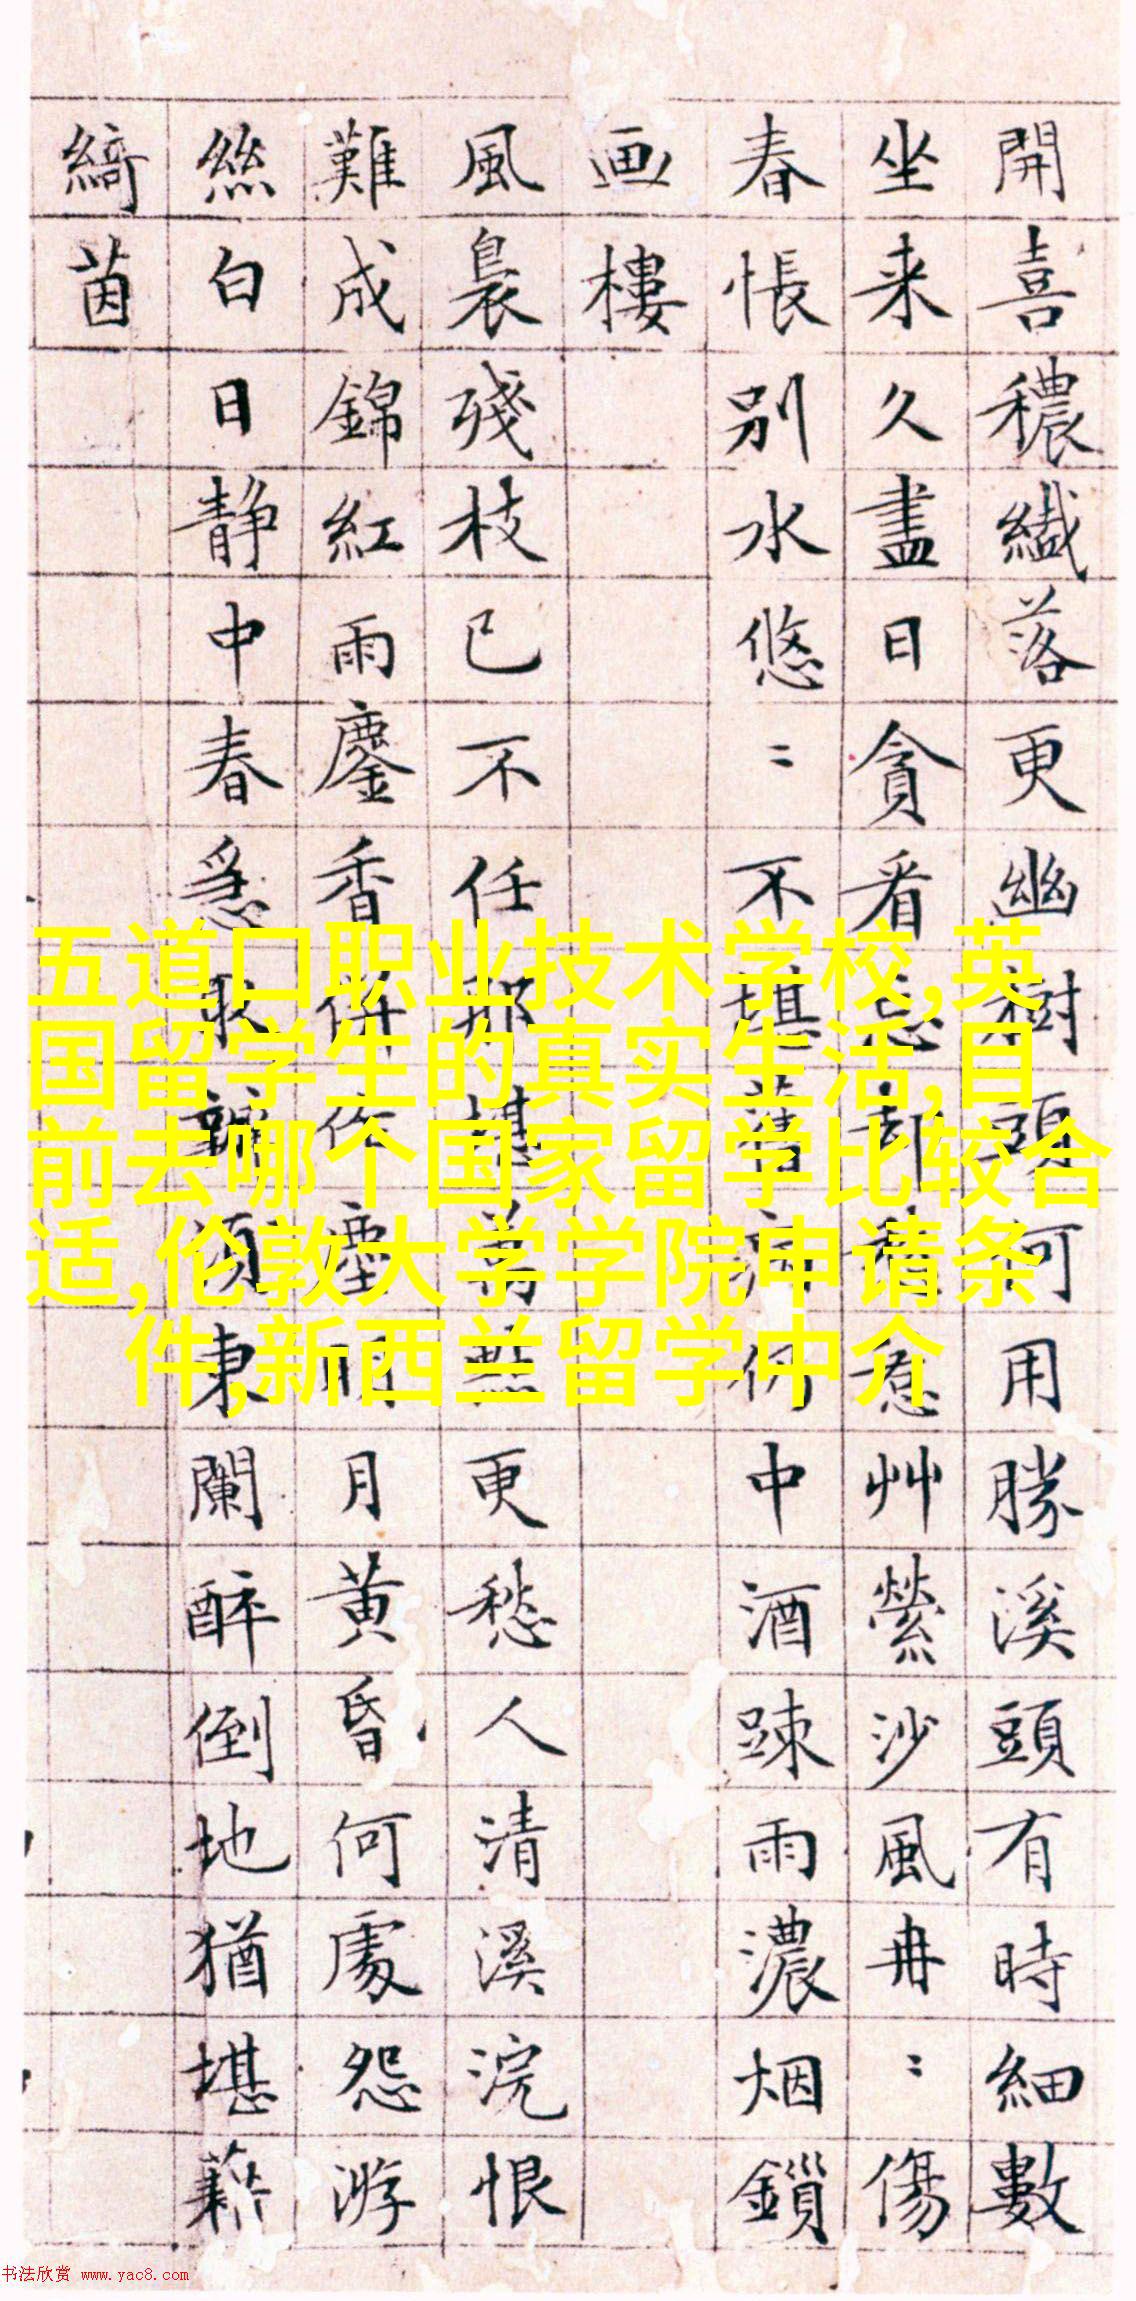 開喜穠纎落更幽樹頭何用勝溪頭有時細數
坐来久盡日貪看忘却惹艸縈沙風冉〻傷
春悵別水悠〻不堪著仍中酒踈雨濃烟鎖
画樓
風裊殘枝已不任那堪萬點更愁人清溪浣恨
難成錦紅雨鏖香併作塵明月黄昏何處怨游
絲白日静中春急須東闌醉倒地猶堪藉
綺茵
五道口职业技术学校,英
国留学生的真实生活,目
前去哪个国家留学比较合
适,伦敦大学学院申请条
件,新西兰留学中介
书法欣赏 www.yac8.com